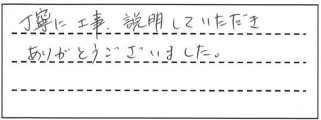 丁寧に工事、説明していただき
ありがとうございました。